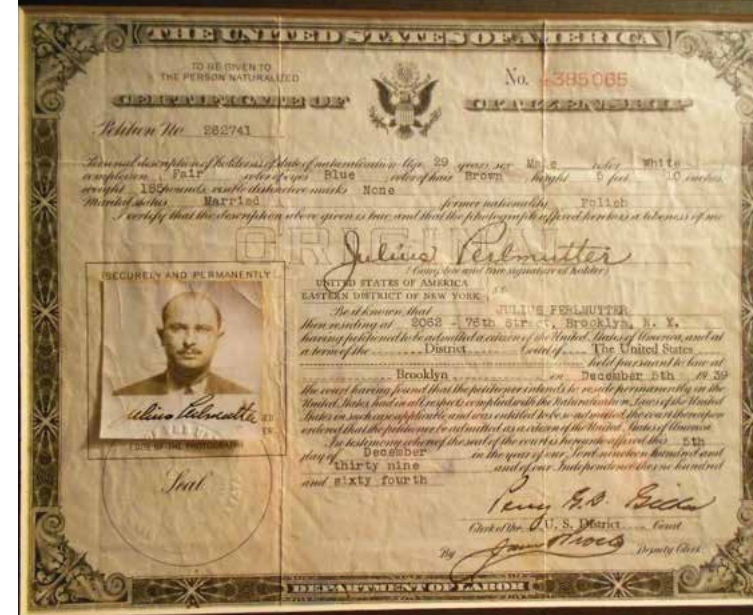 THE UNITED STATES OF AMERICA
TO BE GIVEN TO
THE PERSON NATURALIZED
No. 4385065
CERTIFICATE OF CITIZENSHIP
Petition No 262741
Personal description of holder as of date of naturalization: Age 29 years; sex Male color White
complexion Fair color of eyes Blue color of hair Brown height 5 feet 10 inches
weight 155 pounds; visible distinctive marks None
Marital status Married former nationality Polish
I certify that the description above given is true, and that the photograph affixed hereto is a likeness of me
ORIGINAL
Julius Perlmutter
(Complete and true signature of holder)
SECURELY AND PERMANENTLY
Julius Perlmutter
EDGE OF THE PHOTOGRAPH
Seal
UNITED STATES OF AMERICA
EASTERN DISTRICT OF NEW YORK ss.
Be it known, that JULIUS PERLMUTTER
then residing at 2062 - 76th Street, Brooklyn, N. Y.
having petitioned to be admitted a citizen of the United States of America, and at
a term of the District Court of The United States
held pursuant to law at
Brooklyn on December 5th 1939
the court having found that the petitioner intends to reside permanently in the
United States, had in all respects complied with the Naturalization Laws of the United
States in such case applicable, and was entitled to be so admitted, the court thereupon
ordered that the petitioner be admitted as a citizen of the United States of America
In testimony whereof the seal of the court is hereunto affixed this 5th
day of December in the year of our Lord nineteen hundred and
thirty nine and of our Independence the one hundred
and sixty fourth
Percy G.B.
Clerk of the U. S. District Court
By Deputy Clerk
DEPARTMENT OF LABOR